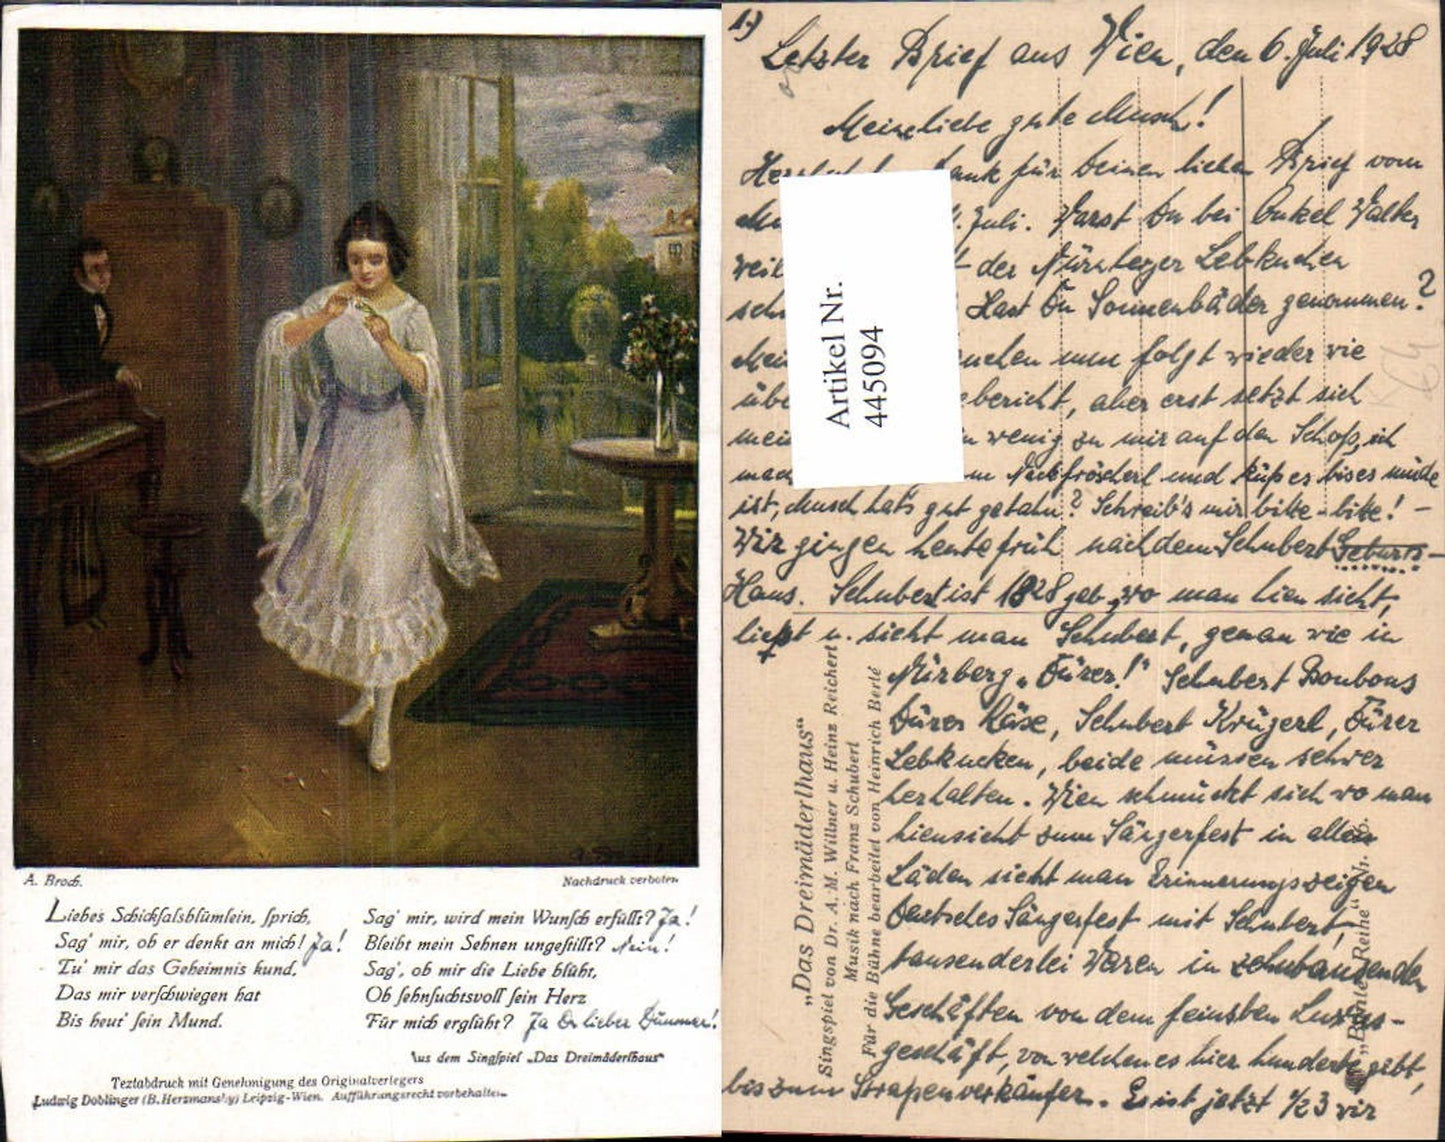 A. Broch.
Nachdruck verboten
Liebes Schicksalsblümlein, sprich,
Sag' mir, ob er denkt an mich! Ja!
Tu' mir das Geheimnis kund,
Das mir verschwiegen hat
Bis heut' sein Mund.
Sag' mir, wird mein Wunsch erfüllt? Ja!
Bleibt mein Sehnen ungestillt? Nein!
Sag', ob mir die Liebe blüht,
Ob sehnsuchtsvoll sein Herz
Für mich erglüht? Ja Du lieber Dummer!
Aus dem Singspiel „Das Dreimäderlhaus“
Textabdruck mit Genehmigung des Originalverlegers
Ludwig Doblinger (B. Herzmansky) Leipzig-Wien. Aufführungsrecht vorbehalten
1.)
Letzter Brief aus Wien, den 6. Juli 1928
Meine liebe gute Musch!
Dank für Deinen lieben Brief vom
Juli. Warst Du bei Onkel Walter
weil der Nürnberger Lebkuchen
Hast Du Sonnenbäder genommen?
nun folgt wieder wie
bericht, aber erst setzt sich
wenig zu mir auf den Schoß, ich
und küß es bis es müde
ist, Musch hat's gut getan? Schreib's mir bitte - bitte! -
Wir gingen heute früh nach dem Schubert Geburts-
Haus. Schubert ist 1828 geb, wo man hier sieht,
liest u. sieht man Schubert, genau wie in
Nürberg „Dürer!“ Schubert Bonbons
Dürer Käse, Schubert Krügerl, Dürer
Lebkucken, beide müssen schwer
herhalten. Wien schmückt sich wo man
hiensieht zum Sängerfest in allen
Läden sieht man Erinnerungszeigen
Deutsches Sängerfest mit Schubert,
tausenderlei Waren in zehntausenden
Geschäften von dem feinsten Luxus-
geschäft, von welchen es hier hunderte gibt,
bis zum Strasenverkäufer. Es ist jetzt 1/2 3 wir
Artikel Nr.
445094
„Das Dreimäderlhaus“
Singspiel von Dr. A. M. Willner u. Heinz Reichert
Musik nach Franz Schubert
Für die Bühne bearbeitet von Heinrich Berté